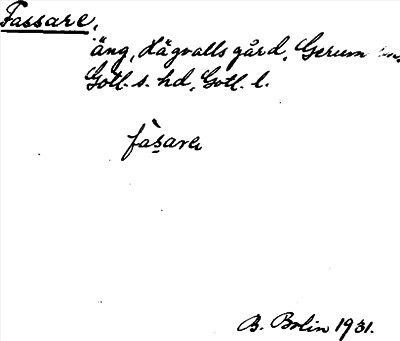 Fassare,
äng, Hägvalls gård, Gerum
Gotl. s. hd, Gotl. l.
fàsare
B. Bolin 1931.